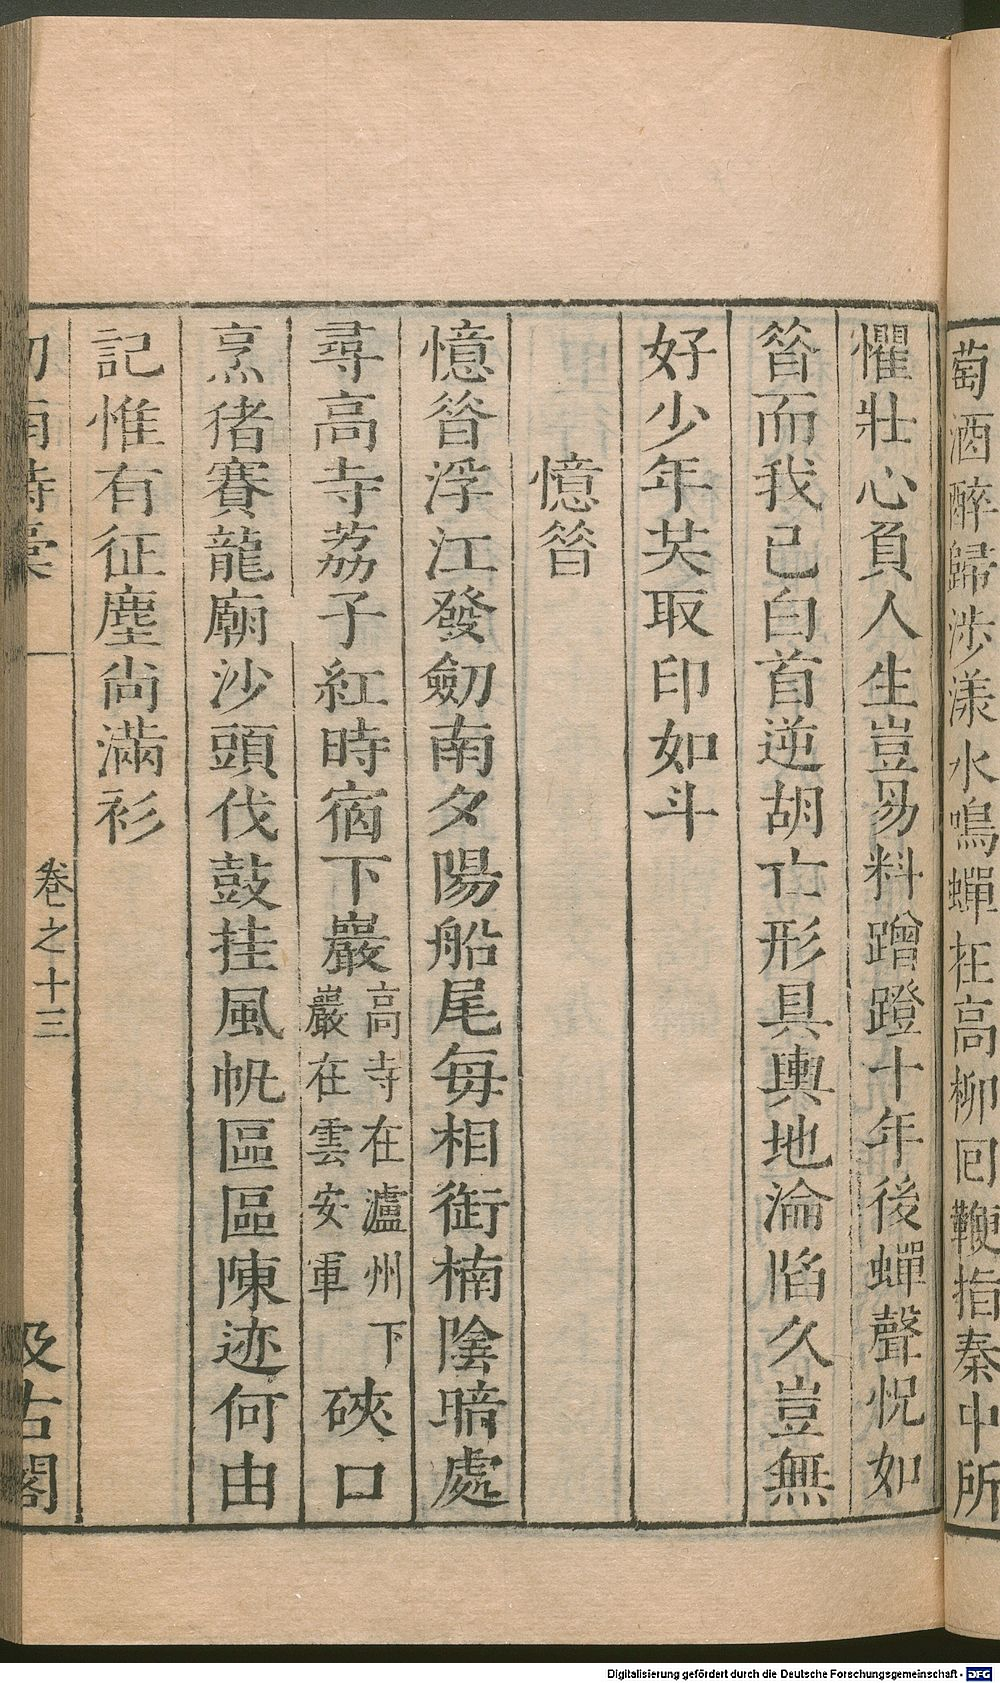 萄酒醉歸涉漾水鳴蟬在高柳回鞭指秦中所
懼壯心負人生豈易料蹭蹬十年後蟬聲怳如
昝而我已白首逆胡亡形具輿地淪陷久豈無
好少年共取印如斗
憶昝
憶昝浮江發劒南夕陽船尾每相銜楠陰暗處
尋高寺荔子紅時宿下巖
高寺在瀘州下
巖在雲安軍
硤口
烹猪賽龍廟沙頭伐鼓挂風帆區區陳迹何由
記惟有征塵尚滿衫
劒南詩稾
卷之十三
汲古閣
Digitalisierung gefördert durch die Deutsche Forschungsgemeinschaft - DFG